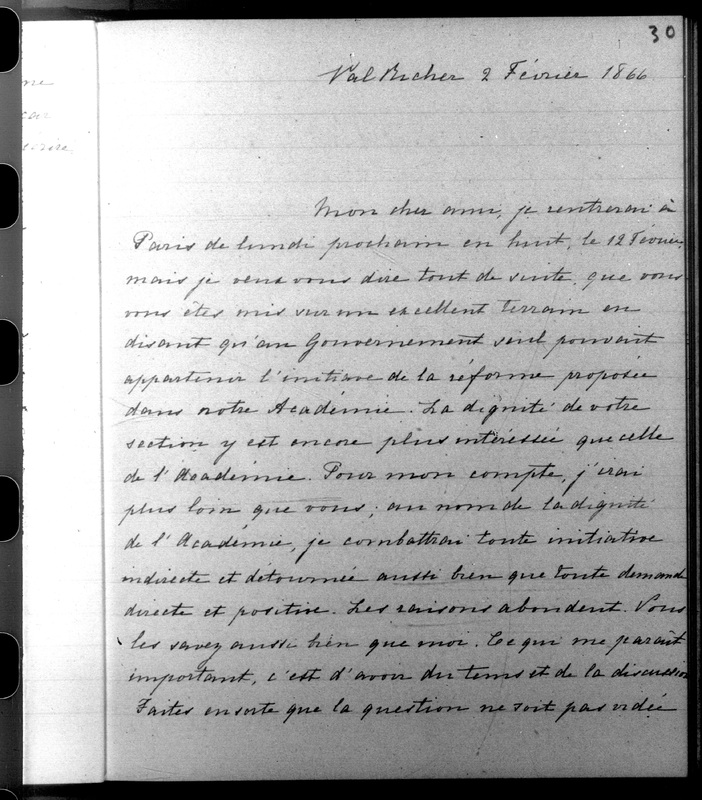 30
Val Richer 2 Février 1866
Mon cher ami, je rentrerai à
Paris de lundi prochain en huit, le 12 Février,
mais je veux vous dire tout de suite que vous
vous êtes mis sur un excellent terrain en
disant qu'au Gouvernement seul pouvait
appartenir l'initiave de la réforme proposée
dans notre Académie. La dignité de votre
section y est encore plus intéressée que celle
de l'Académie. Pour mon compte, j'irai
plus loin que vous; au nom de la dignité
de l'Académie, je combattrai toute initiative
indirecte et détournée aussi bien que toute demande
directe et positive. Les raisons abondent. Vous
les savez aussi bien que moi. Ce qui me paraît
important, c'est d'avoir du tems et de la discussion
Faites en sorte que la question ne soit pas vidée